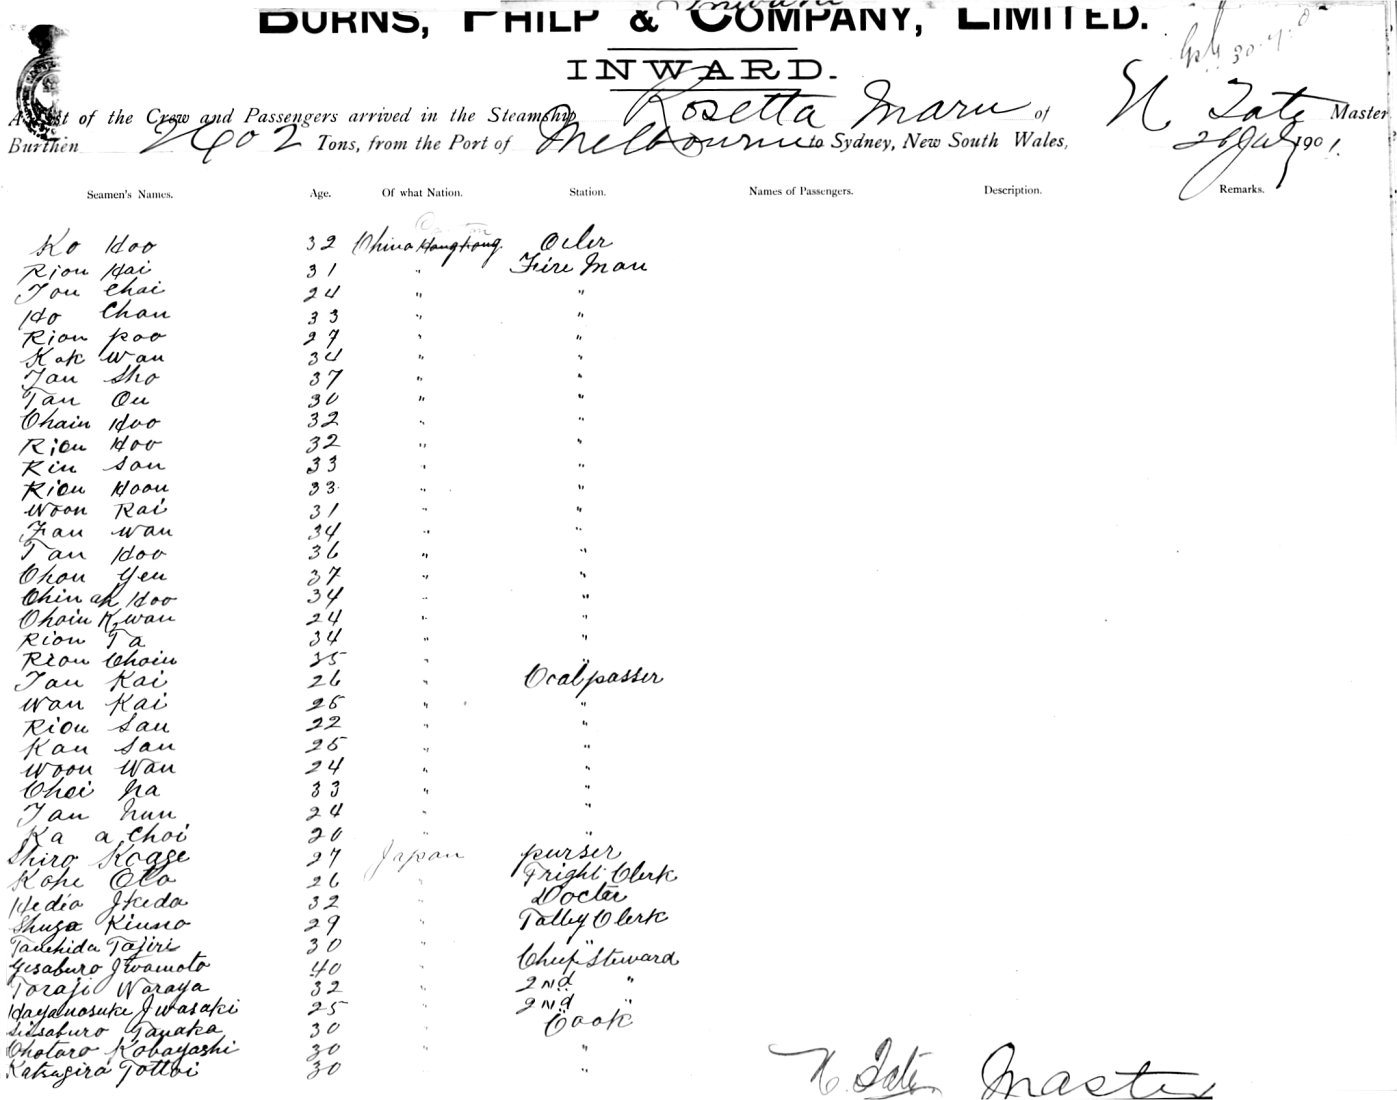 BURNS, PHILP & COMPANY, LIMITED.
INWARD.
A List of the Crew and Passengers arrived in the Steamship Rosetta Maru of N. Tate Master,
Burthen 2602 Tons, from the Port of Melbourne to Sydney, New South Wales, 26 July 1901.
Seamen's Names. Age. Of what Nation. Station. Names of Passengers. Description. Remarks.
Ko Hoo 32 China Hongkong Oiler
Riou Hai 31 " Fire Man
Tou Chai 24 " "
Ho Chan 33 " "
Riou poo 27 " "
Kok Wan 34 " "
Tan Sho 37 " "
Tan Ou 30 " "
Chain Hoo 32 " "
Riou Hoo 32 " "
Rin San 33 " "
Riou Hoou 33 " "
Woon Rai 31 " "
Fan Wan 34 " "
Tan Hoo 36 " "
Chou Yeu 37 " "
Chin ah Hoo 34 " "
Chain Kwan 24 " "
Riou Ta 34 " "
Riou Choin 35 " "
Tan Kai 26 " Coal passer
Wan Kai 25 " "
Riou San 22 " "
Kan San 25 " "
Woon Wan 24 " "
Choi Na 33 " "
Tan Nun 24 " "
Ka a Choi 20 " "
Shiro Koage 27 Japan purser
Kohe Oto 26 " Fright Clerk
Hedio Ikeda 32 " Docter
Shuga Kiuno 29 " Talley Clerk
Tanehida Tajiri 30 " "
Gesaburo Iwamoto 40 " Chief Steward
Toraji Waraya 32 " 2nd "
Hayanosuke Iwasaki 25 " 2nd "
Tanaka 30 " Cook
Chotaro Kobayashi 30 " "
Katsugira Tottoi 30 " "
N. Tate Master